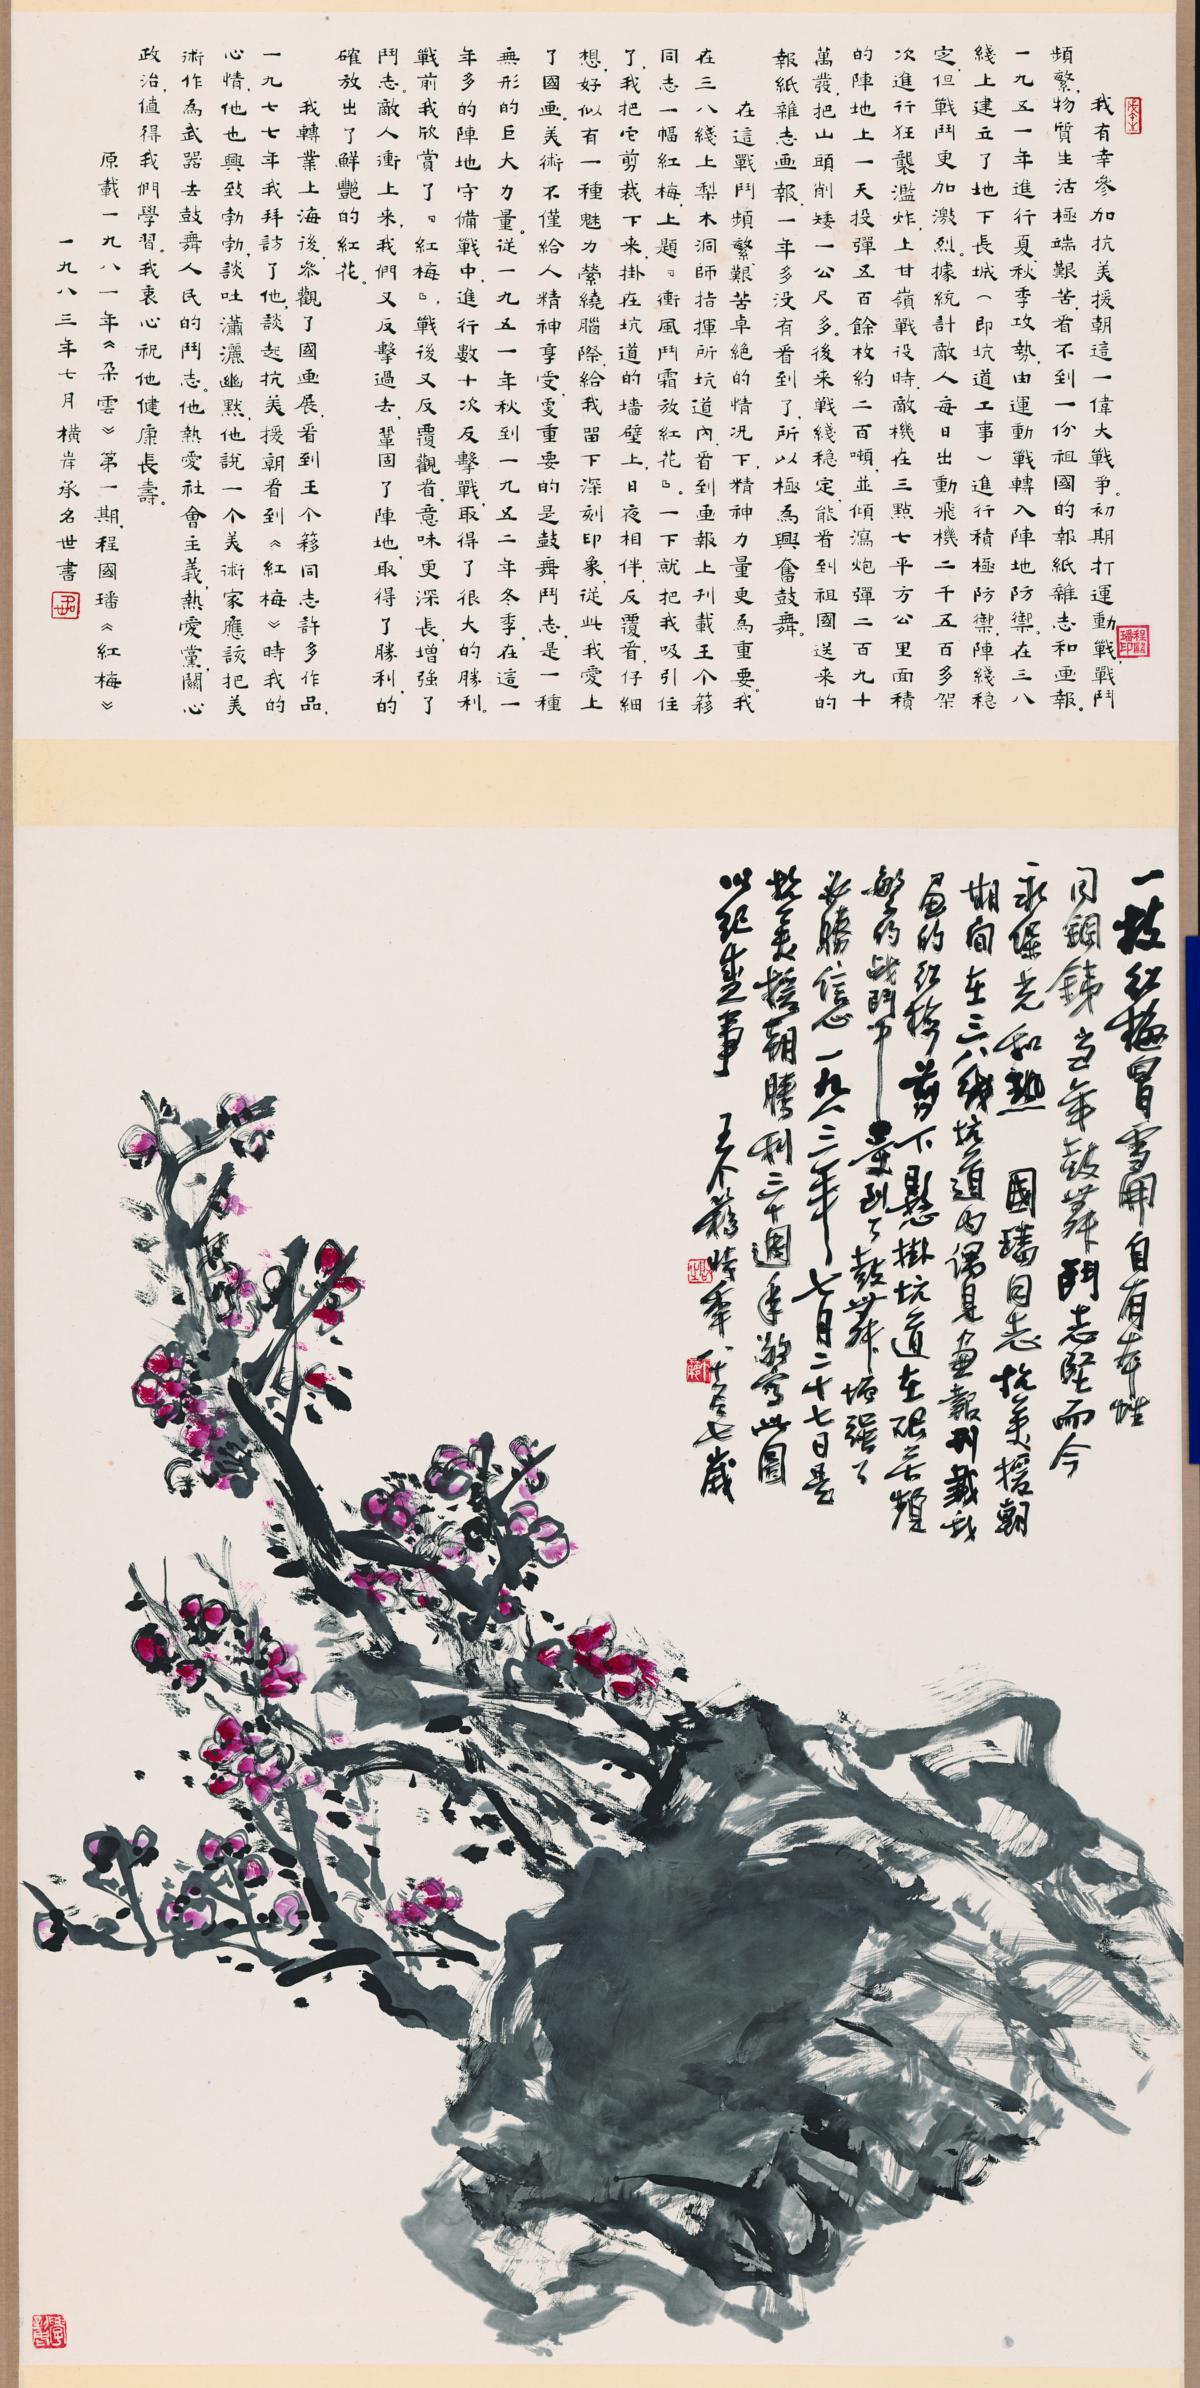 我有幸參加抗美援朝這一偉大戰爭。初期打運動戰,戰鬥
頻繁,物質生活極端艱苦,看不到一份祖國的報紙雜志和画報。
一九五一年進行夏秋季攻勢,由運動戰轉入陣地防禦。在三八
綫上建立了地下長城(即坑道工事)進行積極防禦,陣綫穩
定,但戰鬥更加激烈。據統計敵人每日出動飛機二千五百多架
次進行狂襲濫炸,上甘嶺戰役時,敵機在三點七平方公里面積
的陣地上一天投彈五百餘枚約二百噸,並傾瀉炮彈二百九十
萬發,把山頭削矮一公尺多。後来戰綫穩定,能看到祖國送来的
報紙雜志画報,一年多没有看到了,所以極爲興奮鼓舞。
在這戰鬥頻繁艱苦卓絶的情况下,精神力量更爲重要。我
在三八綫上梨木洞師指揮所坑道內,看到画報上刋載王个簃
同志一幅紅梅,上題『衝風鬥霜放紅花』。一下就把我吸引住
了,我把它剪裁下来,掛在坑道的墻壁上,日夜相伴,反覆看,仔細
想,好似有一種魅力縈繞腦際,給我留下深刻印象,從此我愛上
了國画。美術不僅給人精神享受,更重要的是鼓舞鬥志,是一種
無形的巨大力量。從一九五一年秋到一九五二年冬季,在這一
年多的陣地守備戰中,進行數十次反擊戰,取得了很大的勝利。
戰前我欣賞了『紅梅』,戰後又反覆觀看,意味更深長,增强了
鬥志。敵人衝上来,我們又反擊過去,鞏固了陣地,取得了勝利的
確放出了鮮艷的紅花。
我轉業上海後,參觀了國画展,看到王个簃同志許多作品,
一九七七年我拜訪了他,談起抗美援朝看到《紅梅》時我的
心情,他也興致勃勃,談吐瀟灑幽默,他說一个美術家應該把美
術作爲武器去鼓舞人民的鬥志。他熱愛社會主義,熱愛黨,關心
政治,值得我們學習。我衷心祝他健康長壽。
原載一九八一年《朵雲》第一期,程國璠《紅梅》
一九八三年七月橫岸承名世書
一枝紅梅冒雪開自有本性
同鋼鐵當年鼓舞鬥志堅而今
永葆光和熱 國璠同志抗美援朝
期間在三八线坑道内偶見画報刋載我
画的紅梅剪下懸掛坑道在艰苦頻
繁的战鬥中受到了鼓舞增强了
必勝信心一九八三年七月二十七日是
抗美援朝勝利三十週年敬写此圖
以紀盛事 王个簃時年八十有七歲